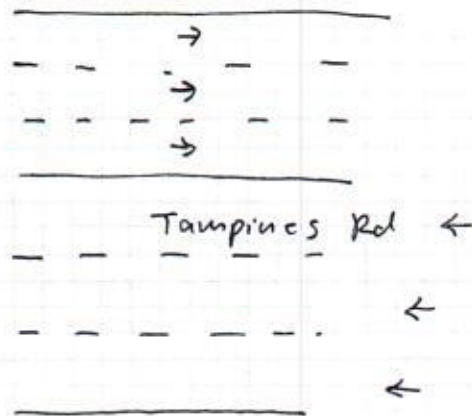 Tampines Rd